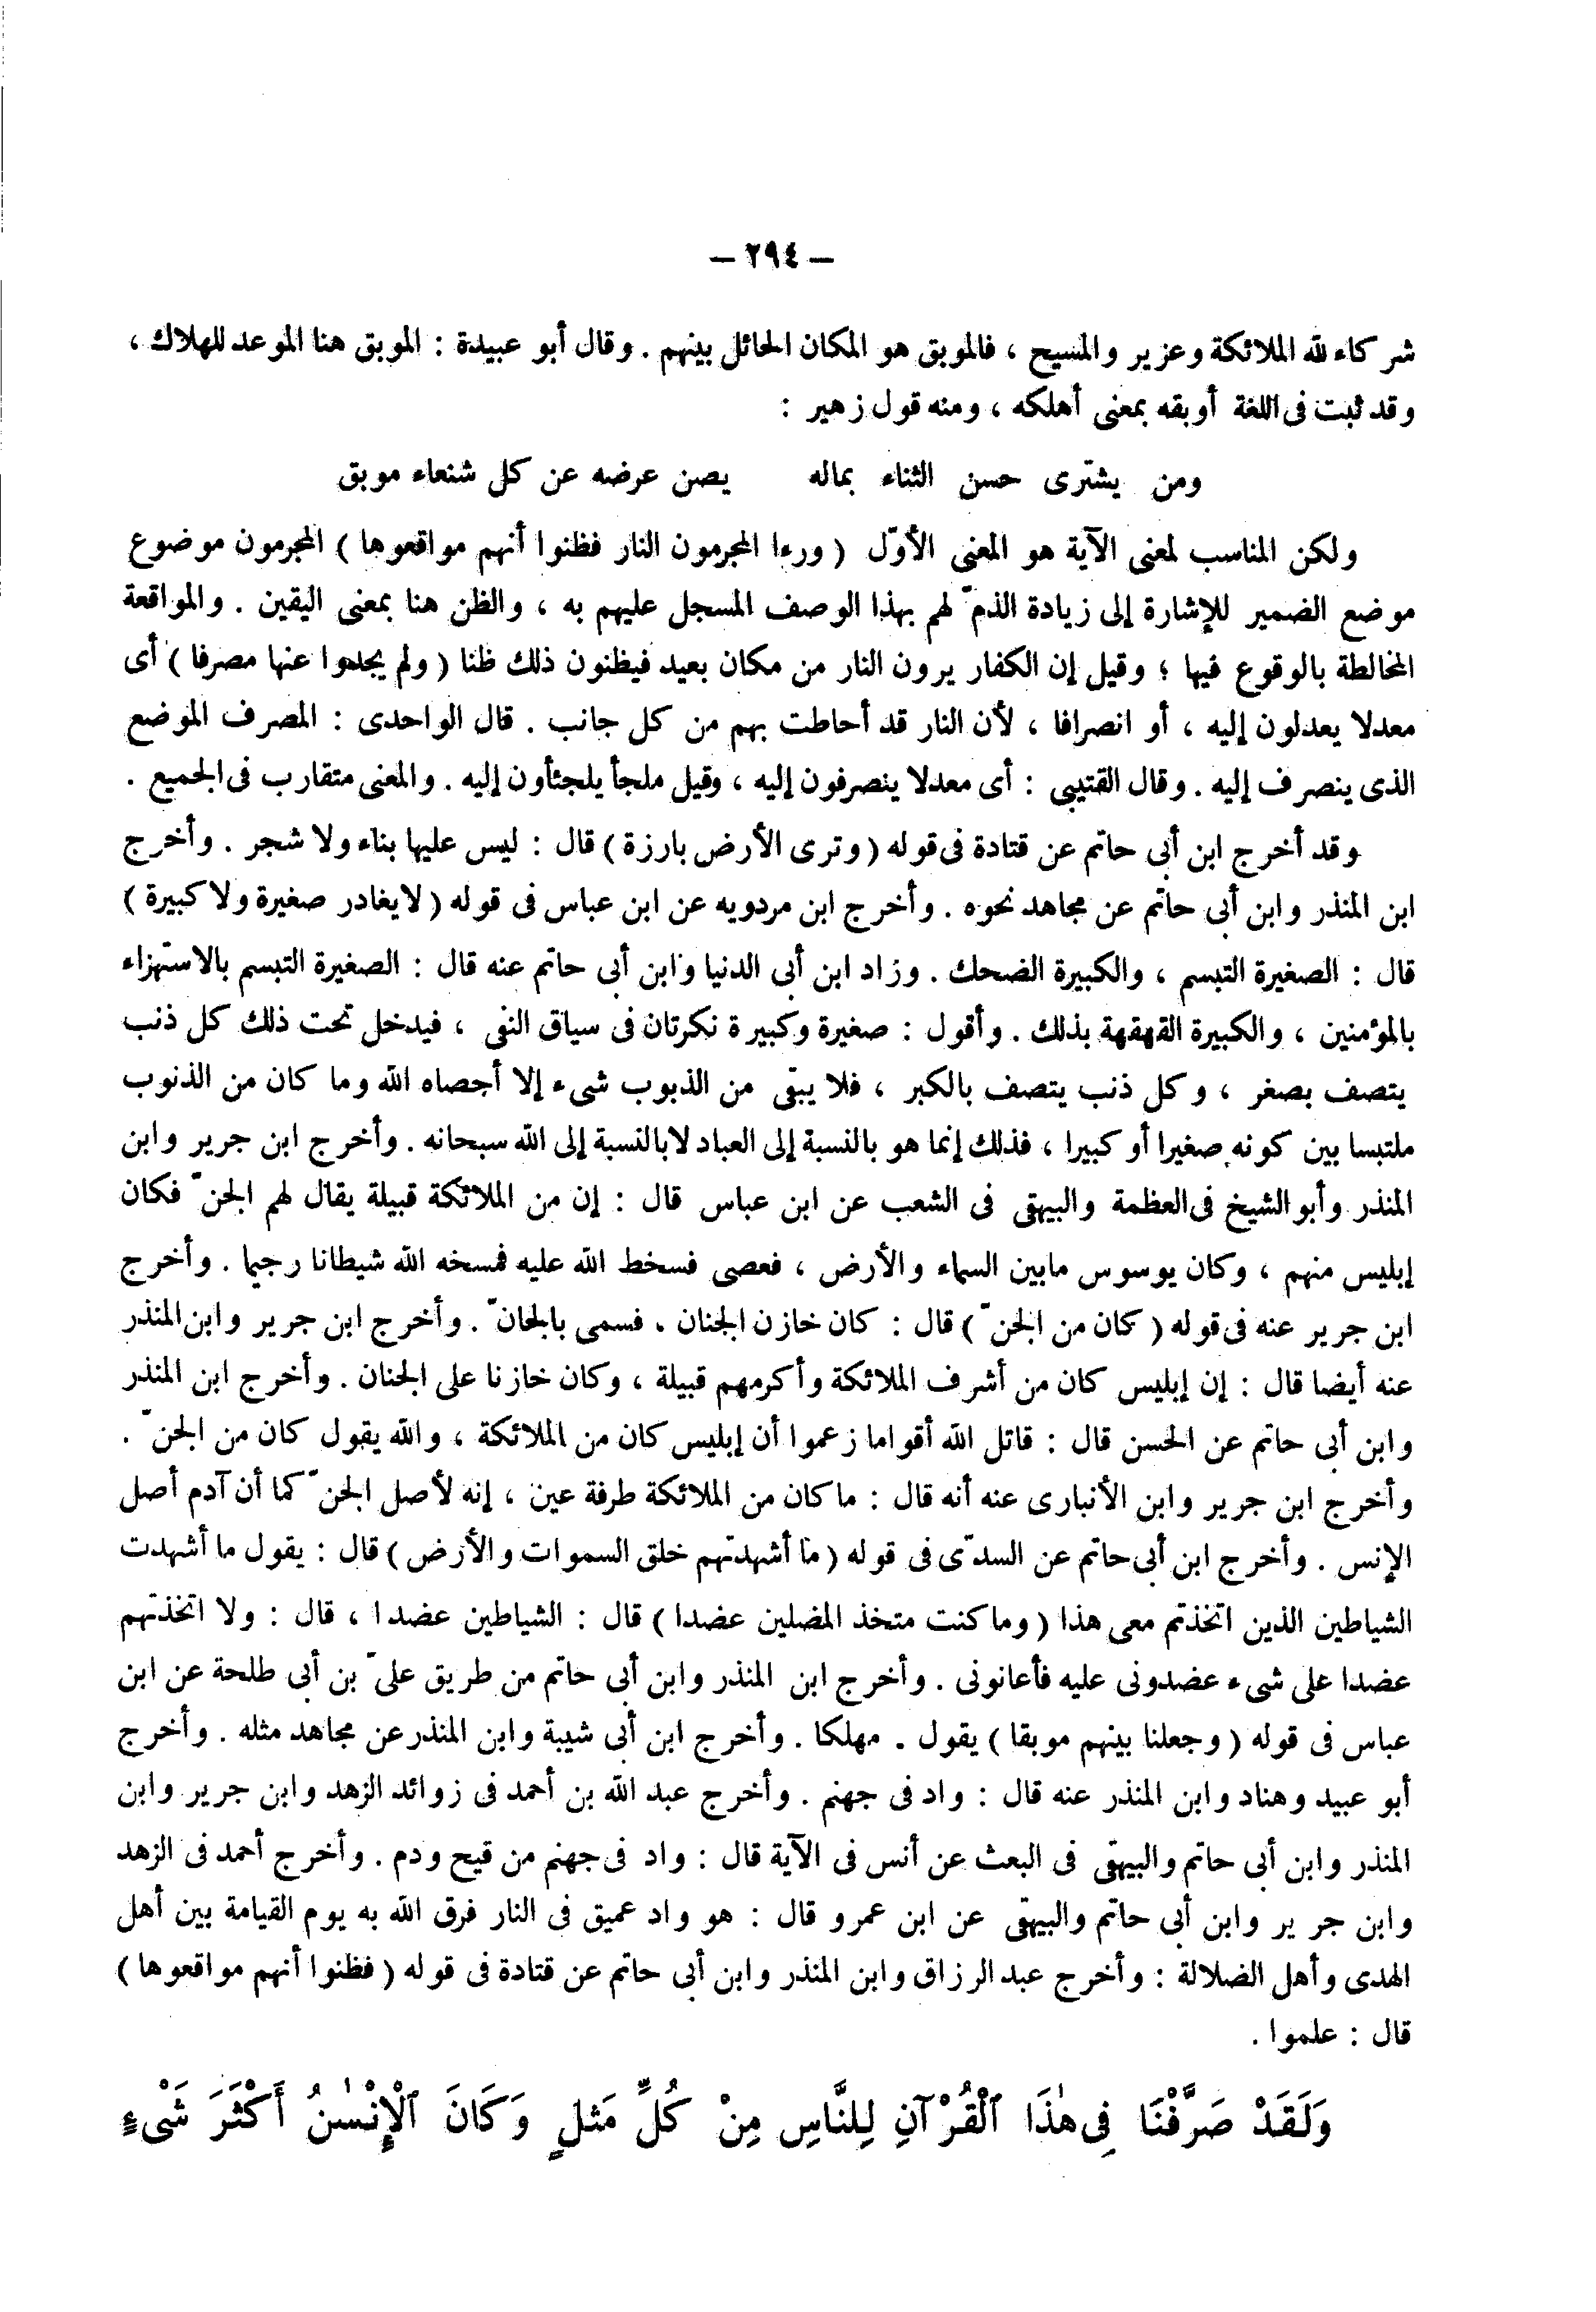 — ٢٩٤ —
شركاء لله الملائكة وعزير والمسيح ، فالموبق هو المكان الحائل بينهم . وقال أبو عبيدة : الموبق هنا الموعد للهلاك ،
وقد ثبت فى اللغة أوبقه بمعنى أهلكه ، ومنه قول زهير :
ومن يشترى حسن الثناء بماله يصن عرضه عن كل شنعاء موبق
ولكن المناسب لمعنى الآية هو المعنى الأوّل ( ورءا المجرمون النار فظنوا أنهم مواقعوها ) المجرمون موضوع
موضع الضمير للإشارة إلى زيادة الذمّ لهم بهذا الوصف المسجل عليهم به ، والظن هنا بمعنى اليقين . والمواقعة
المخالطة بالوقوع فيها ؛ وقيل إن الكفار يرون النار من مكان بعيد فيظنون ذلك ظنا ( ولم يجدوا عنها مصرفا ) أى
معدلا يعدلون إليه ، أو انصرافا ، لأن النار قد أحاطت بهم من كل جانب . قال الواحدى : المصرف الموضع
الذى ينصرف إليه . وقال القتيبى : أى معدلا ينصرفون إليه ، وقيل ملجأ يلجئأون إليه . والمعنى متقارب فى الجميع .
وقد أخرج ابن أبى حاتم عن قتادة فى قوله ( وترى الأرض بارزة ) قال : ليس عليها بناء ولا شجر . وأخرج
ابن المنذر وابن أبى حاتم عن مجاهد نحوه . وأخرج ابن مردويه عن ابن عباس فى قوله ( لايغادر صغيرة ولا كبيرة )
قال : الصغيرة التبسم ، والكبيرة الضحك . وزاد ابن أبى الدنيا وابن أبى حاتم عنه قال : الصغيرة التبسم بالاستهزاء
بالمؤمنين ، والكبيرة القهقهة بذلك . وأقول : صغيرة وكبيرة نكرتان فى سياق النفى ، فيدخل تحت ذلك كل ذنب
يتصف بصغر ، وكل ذنب يتصف بالكبر ، فلا يبقى من الذبوب شىء إلا أحصاه الله وما كان من الذنوب
ملتبسا بين كونه صغيرا أو كبيرا ، فذلك إنما هو بالنسبة إلى العباد لابالنسبة إلى الله سبحانه . وأخرج ابن جرير وابن
المنذر وأبو الشيخ فى العظمة والبيهقى فى الشعب عن ابن عباس قال : إن من الملائكة قبيلة يقال لهم الجنّ فكان
إبليس منهم ، وكان يوسوس مابين السماء والأرض ، فعصى فسخط الله عليه فمسخه الله شيطانا رجيما . وأخرج
ابن جرير عنه فى قوله ( كان من الجنّ ) قال : كان خازن الجنان ، فسمى بالجانّ . وأخرج ابن جرير وابن المنذر
عنه أيضا قال : إن إبليس كان من أشرف الملائكة وأكرمهم قبيلة ، وكان خازنا على الجنان . وأخرج ابن المنذر
وابن أبى حاتم عن الحسن قال : قاتل الله أقواما زعموا أن إبليس كان من الملائكة ، والله يقول كان من الجنّ .
وأخرج ابن جرير وابن الأنبارى عنه أنه قال : ما كان من الملائكة طرفة عين ، إنه لأصل الجنّ كما أن آدم أصل
الإنس . وأخرج ابن أبى حاتم عن السدّى فى قوله ( ما أشهدتهم خلق السموات والأرض ) قال : يقول ما أشهدت
الشياطين الذين اتخذتم معى هذا ( وما كنت متخذ المضلين عضدا ) قال : الشياطين عضدا ، قال : ولا اتخذتهم
عضدا على شىء عضدونى عليه فأعانونى . وأخرج ابن المنذر وابن أبى حاتم من طريق علىّ بن أبى طلحة عن ابن
عباس فى قوله ( وجعلنا بينهم موبقا ) يقول . مهلكا . وأخرج ابن أبى شيبة وابن المنذر عن مجاهد مثله . وأخرج
أبو عبيد وهناد وابن المنذر عنه قال : واد فى جهنم . وأخرج عبد الله بن أحمد فى زوائد الزهد وابن جرير وابن
المنذر وابن أبى حاتم والبيهقى فى البعث عن أنس فى الآية قال : واد فى جهنم من قيح ودم . وأخرج أحمد فى الزهد
وابن جرير وابن أبى حاتم والبيهقى عن ابن عمرو قال : هو واد عميق فى النار فرق الله به يوم القيامة بين أهل
الهدى وأهل الضلالة : وأخرج عبد الرزاق وابن المنذر وابن أبى حاتم عن قتادة فى قوله ( فظنوا أنهم مواقعوها )
قال : علموا .
وَلَقَدْ صَرَّفْنَا فِى هٰذَا ٱلْقُرْآنِ لِلنَّاسِ مِنْ كُلِّ مَثَلٍ وَكَانَ ٱلْإِنْسٰنُ أَكْثَرَ شَىْءٍ